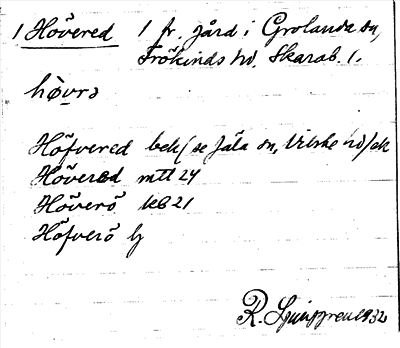 1 Hövered 1 fr. gård i Grolanda sn,
Frökinds hd. Skarab. l.
hòvrə
Höfvered bek (se Jäla sn, Vilske hd) ek
Hövered mtl 24
Höverö kb 21
Höfverö lj
R. Ljunggren 1932